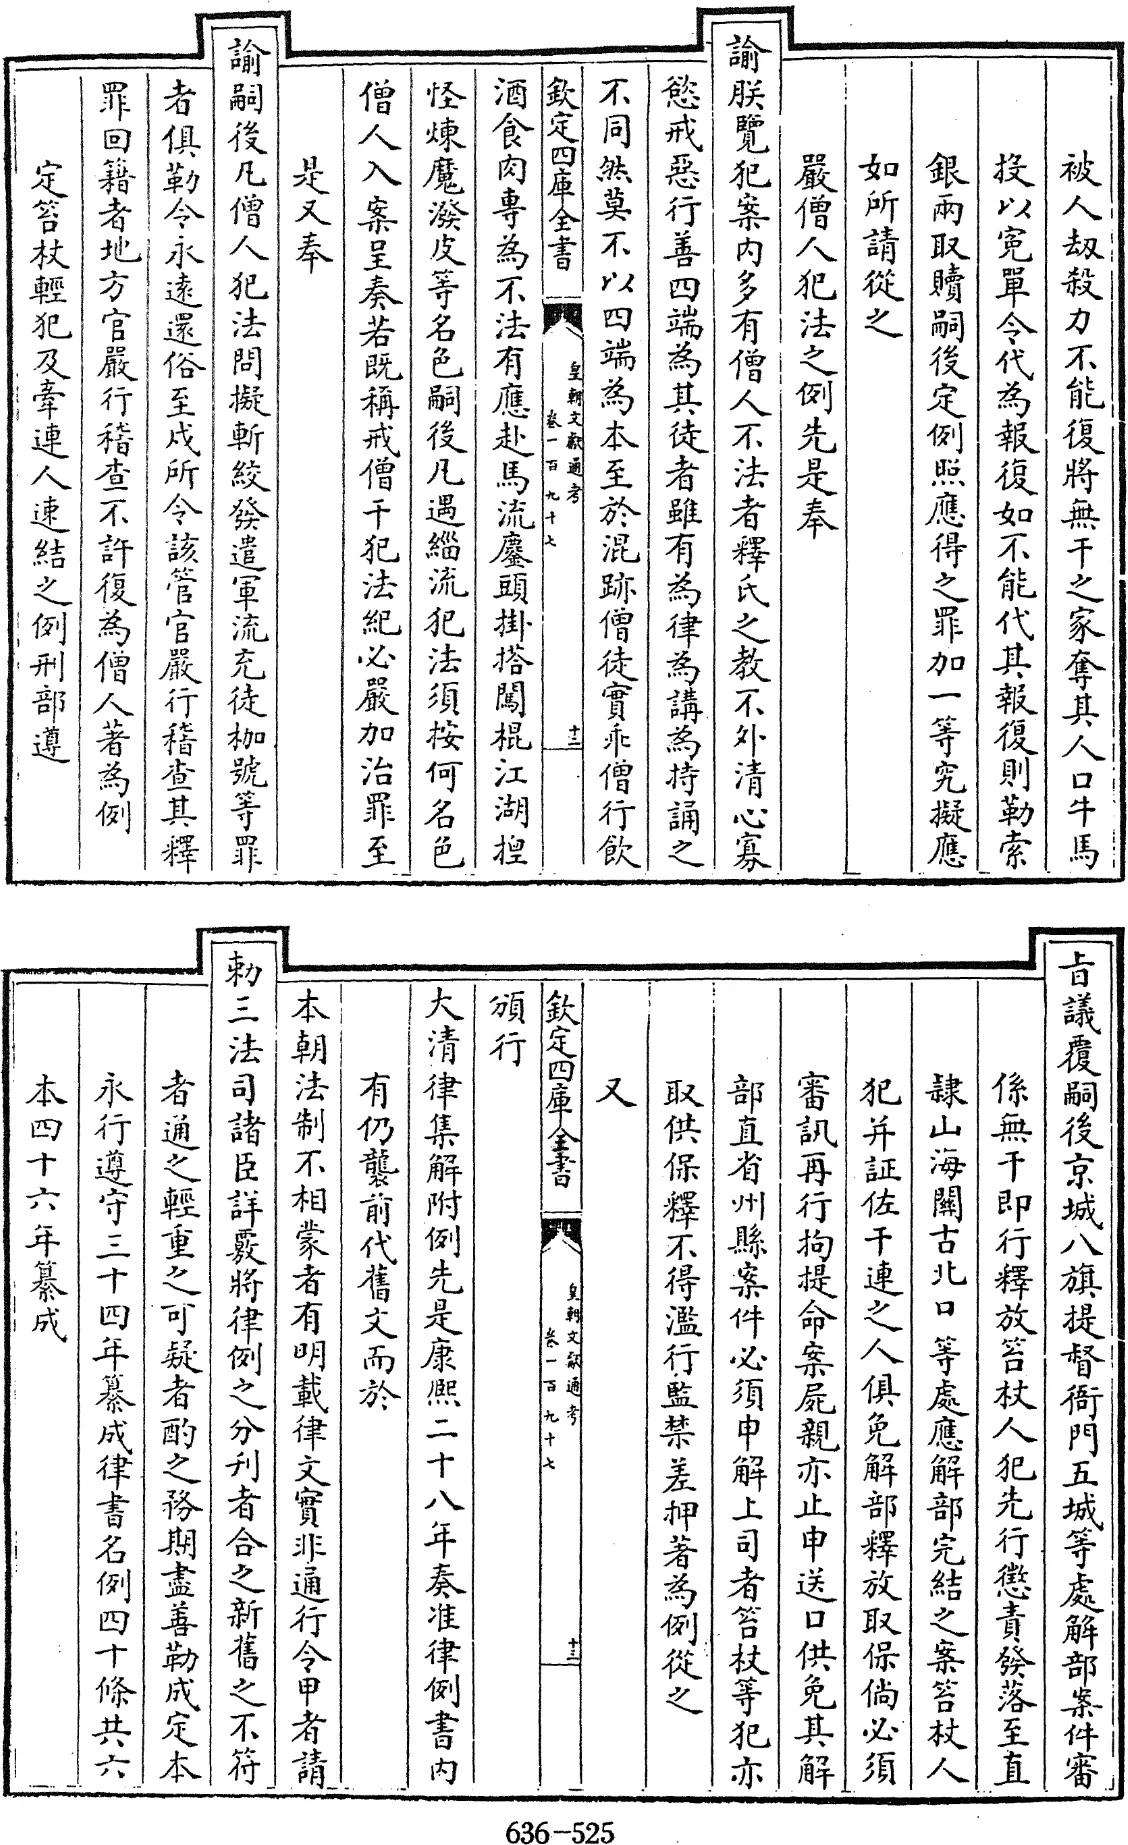 被人刼殺力不能復將無干之家奪其人口牛馬
投以寃單令代為報復如不能代其報復則勒索
銀兩取贖嗣後定例照應得之罪加一等究擬應
如所請從之
嚴僧人犯法之例先是奉
諭朕覽犯案内多有僧人不法者釋氏之教不外清心寡
慾戒惡行善四端為其徒者雖有為律為講為持誦之
不同然莫不以四端為本至於混跡僧徒實乖僧行飲
欽定四庫全書
皇朝文獻通考
卷一百九十七
十二
酒食肉專為不法有應赴馬流鏖頭掛搭闖棍江湖捏
怪煉魔潑皮等名色嗣後凡遇緇流犯法須按何名色
僧人入案呈奏若既稱戒僧干犯法紀必嚴加治罪至
是又奉
諭嗣後凡僧人犯法問擬斬絞發遣軍流充徒枷號等罪
者俱勒令永遠還俗至戍所令該管官嚴行稽查其釋
罪回籍者地方官嚴行稽查不許復為僧人著為例
定笞杖輕犯及牽連人速結之例刑部遵
旨議覆嗣後京城八旗提督衙門五城等處解部案件審
係無干即行釋放笞杖人犯先行懲責發落至直
隸山海關古北口等處應解部完結之案笞杖人
犯并証佐干連之人俱免解部釋放取保倘必須
審訊再行拘提命案屍親亦止申送口供免其解
部直省州縣案件必須申解上司者笞杖等犯亦
取供保釋不得濫行監禁差押著為例從之
又
欽定四庫全書
皇朝文獻通考
卷一百九十七
十三
頒行
大清律集解附例先是康熙二十八年奏准律例書内
有仍襲前代舊文而於
本朝法制不相蒙者有明載律文實非通行令甲者請
勅三法司諸臣詳覈將律例之分刋者合之新舊之不符
者通之輕重之可疑者酌之務期盡善勒成定本
永行遵守三十四年纂成律書名例四十條共六
本四十六年纂成
636-525